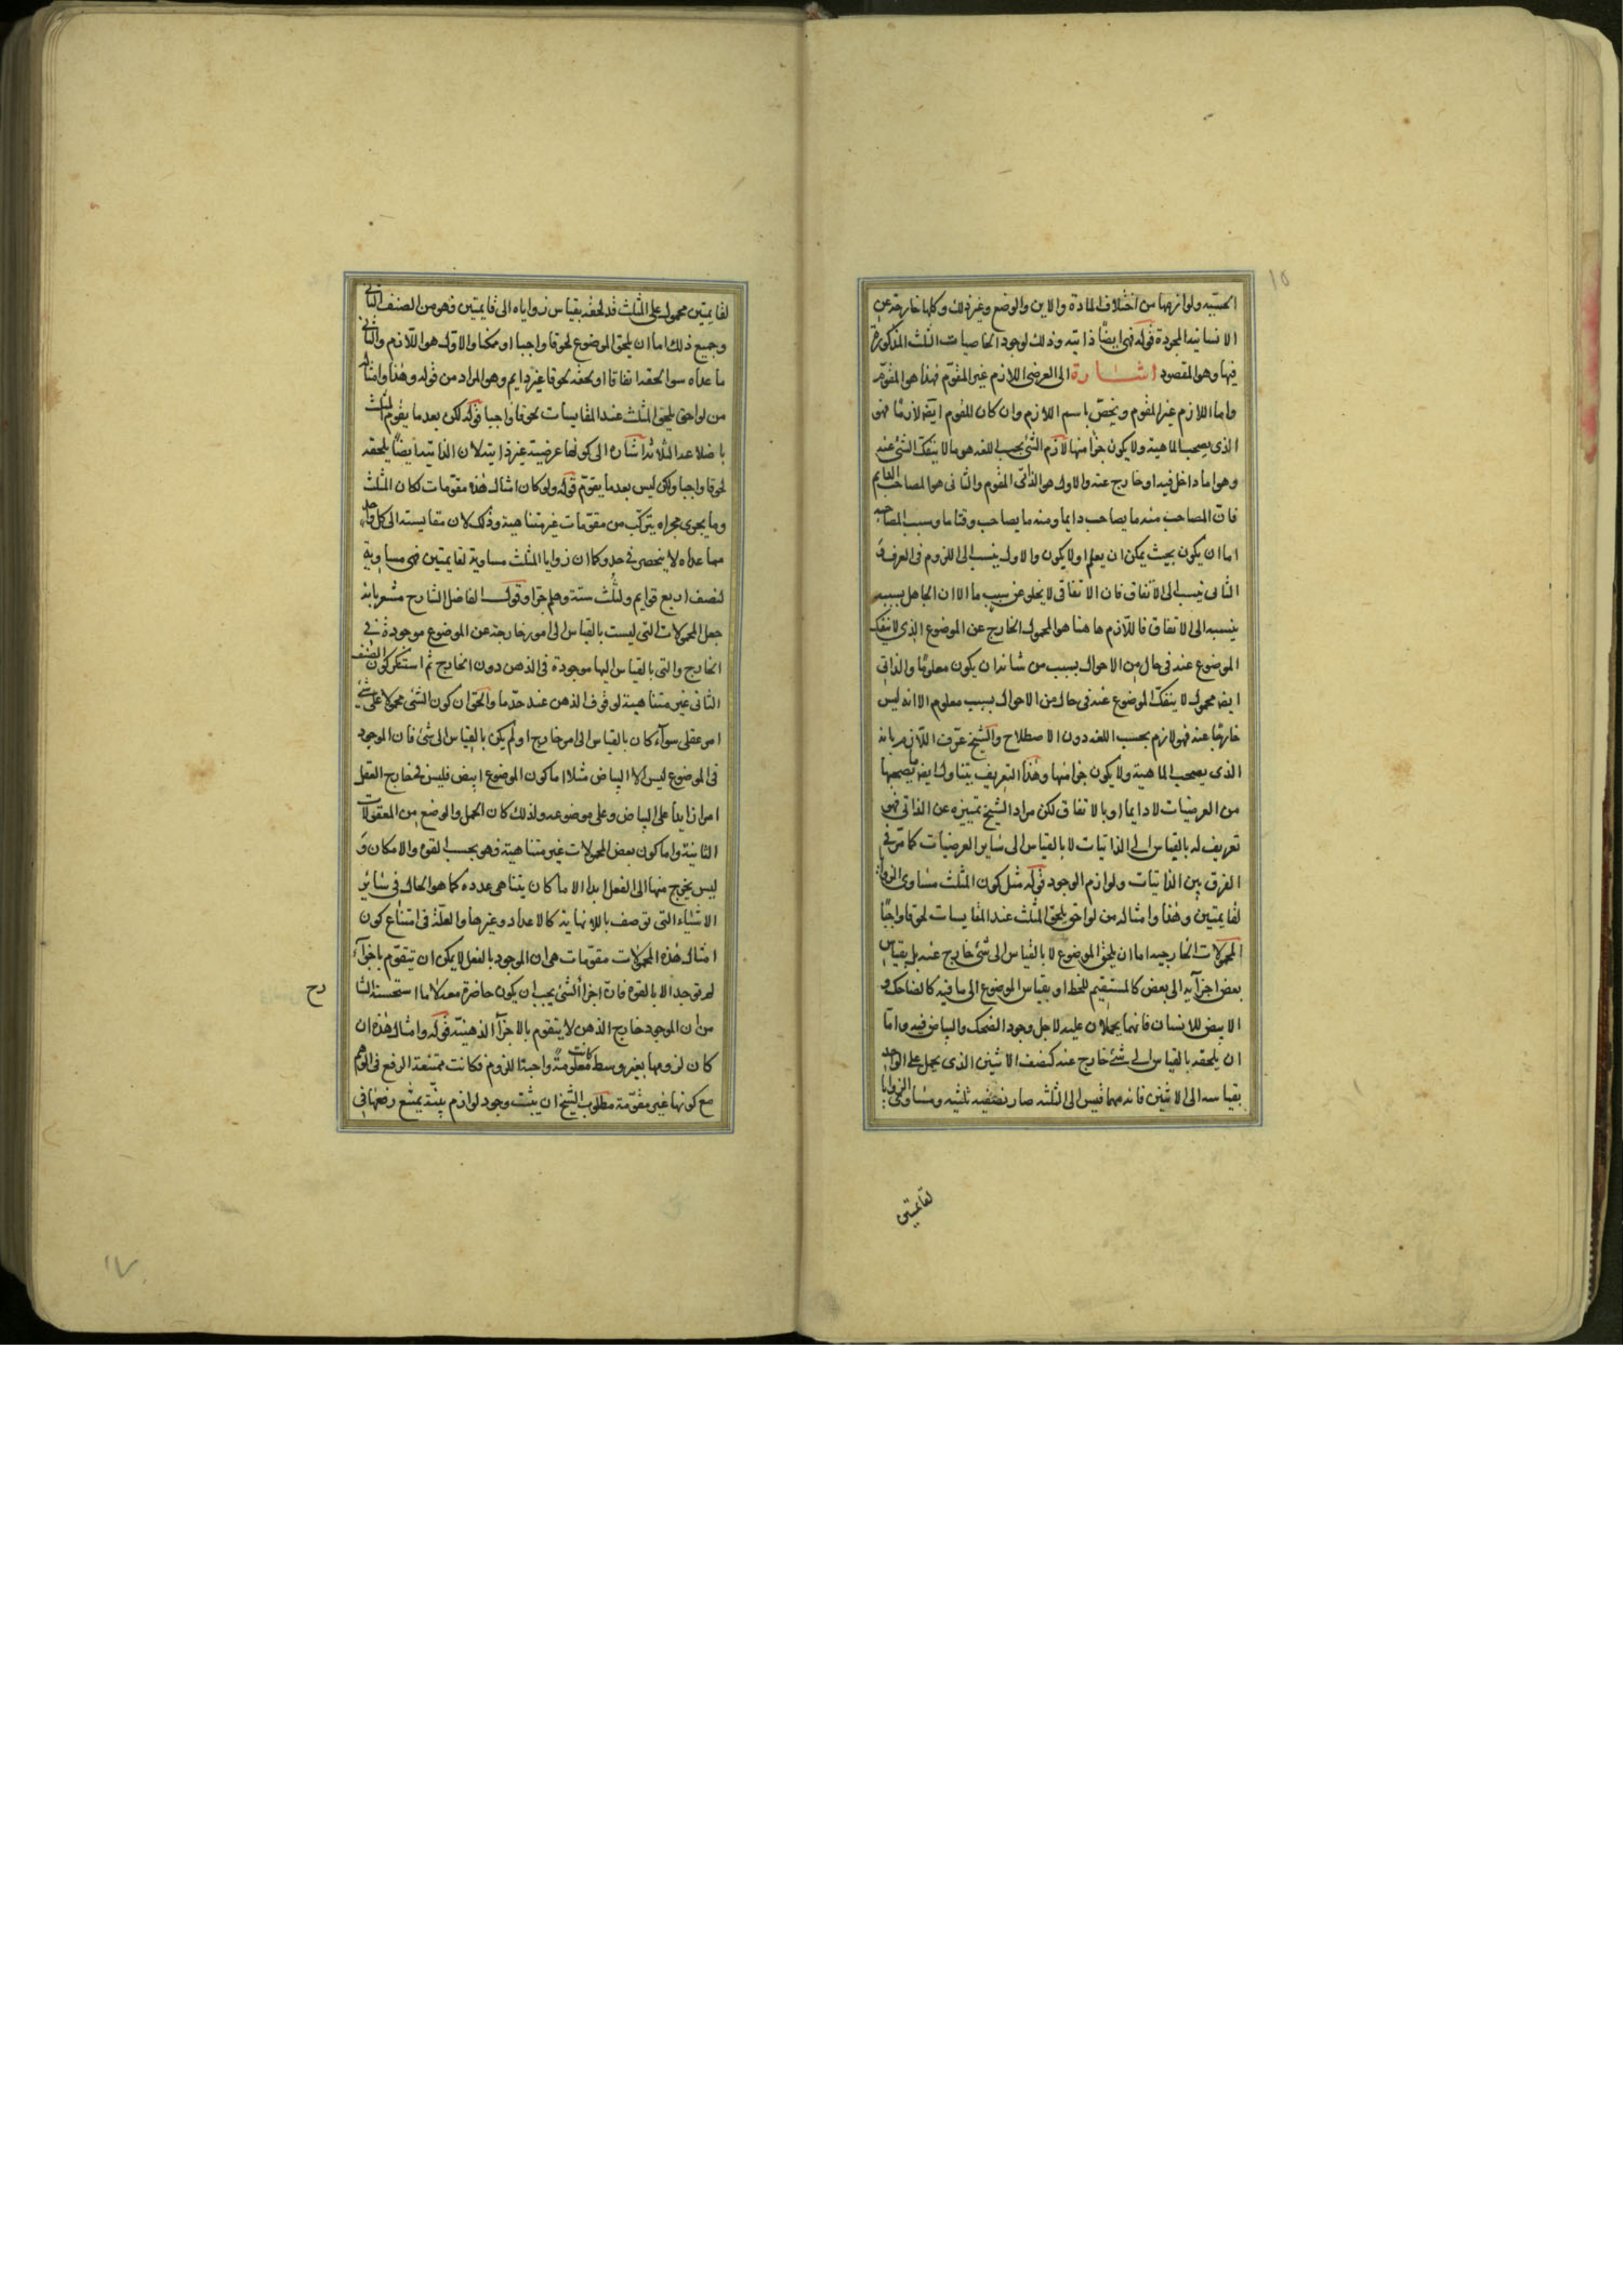 الحسّيه ولوازمها من اختلاف المادة والاين والوضع وغير ذلك وكلها خارجة عن
الانسانية المجردة قوله فهى ايضًا ذاتيه وذلك لوجود الخاصيات الثلث المذكورة
فيها وهو المقصود اشارة الى العرضى اللازم غير المقوّم فهذا هو المقوّم
واما اللازم غير المقوم ويخصّ باسم اللازم وان كان المقوم ايضه لازمًا فهو
الذى يصحب الماهية ولا يكون جزأ منها لازم الشئ بحسب اللغه هو ما لا ينفك الشئ عنه
وهو اما داخل فيه او خارج عنه والاول هو الذاتى المقوم والثانى هو المصاحب الدايم
فان المصاحب منه ما يصاحب دايما ومنه ما يصاحب وقتا ما وسبب المصاحبه
اما ان يكون بحيث يمكن ان يعلم او لا يكون والاول ينسب الى اللزوم فى العرف و
الثانى ينسب الى الاتفاق فان الاتفاق لا يخلو عن سبب ما الا ان الجاهل بسببه
ينسبه الى الاتفاق فاللازم هاهنا هو المحمول الخارج عن الموضوع الذى لا ينفك
الموضوع عنه فى حال من الاحوال بسبب من شانه ان يكون معلومًا والذاتى
ايضه محمول لا ينفكّ الموضوع عنه فى حال من الاحوال بسبب معلوم الا انه ليس
خارجًا عنه فهو لازم بحسب اللغه دون الاصطلاح والشيخ عرّف اللازم بانه
الذى يصحب الماهية ولا يكون جزأ منها وهذا التعريف يتناول ايضه ما يصحبها
من العرضيات لا دايما او بالاتفاق لكن مراد الشيخ تمييزه عن الذاتى فهو
تعريف له بالقياس الى الذاتيات لا بالقياس الى ساير العرضيات كما مرّ فى
الفرق بين الذاتيات ولوازم الوجود قوله مثل كون المثلث مساوى الزوايا
لقايمتين وهذا وامثاله من لواحق يلحق المثلث عند المقايسات لحوقا واجبًا
المحمولات الخارجيه اما ان يلحق الموضوع لا بالقياس الى شئ خارج عنه بل بقياس
بعض اجزآيه الى بعض كالمستقيم للخط او بقياس الموضوع الى ما فيه كالضاحك و
الابيض للانسان فانهما يحملان عليه لاجل وجود الضحك والبياض فيه واما
ان يلحقه بالقياس الى شئ خارج عنه كنصف الاثنين الذى يحمل على الواحد
بقياسه الى الاثنين فانه مهما قيس الى الثلثه صار ثلثيه ومساوى الزوايا
لقايمتين
لقايمتين محمول على المثلث قد لحقه بقياس زواياه الى قايمتين وهو من الصنف الثانى
وجميع ذلك اما ان يلحق الموضوع لحوقا واجبا او ممكنا والاول هو اللازم والثانى
ما عداه سوا لحقه اتفاقا او لحقه لحوقا غير دايم وهو المراد من قوله وهذا وامثاله
من لواحق يلحق المثلث عند المقايسات لحوقا واجبا قوله لكن بعد ما يقوم المثلث
باضلاعه الثلاثه اشاره الى كونها عرضية غير ذاتيه لان الذاتيه ايضًا يلحقه
لحوقا واجبا ولكن ليس بعد ما يقوّم قوله ولو كان امثال هذه مقومات لكان المثلث
وما يجرى مجراه يتركّب من مقوّمات غير متناهية وذلك لان مقايسته الى كل واحد
مما عداه لا ينحصر فى حد وكما ان زوايا المثلث مساوية لقايمتين فهى مساوية
لنصف اربع قوايم ولثلث ستة وهلم جرا وقول الفاضل الشارح مشعر بانه
جعل المحمولات التى ليست بالقياس الى امور خارجة عن الموضوع موجودة فى
الخارج والتى بالقياس اليها موجودة فى الذهن دون الخارج ثم استنكر كون الصنف
الثانى غير متناهية لوقوف الذهن عند حدّ ما والحق ان كون الشئ محمولا على شئ
امر عقلى سوآء كان بالقياس الى امر خارج او لم يكن بالقياس الى شئ فان الموجود
فى الموضوع ليس الا البياض مثلا اما كون الموضوع ابيض فليس فى خارج العقل
امرا زايدا على البياض وعلى موضوعه ولذلك كان الحمل والوضع من المعقولات
الثانية واما كون بعض المحمولات غير متناهية فهو بحسب القوه والامكان و
ليس يخرج منها الى الفعل ابدا الا ما كان يتناهى عدده كما هو الحال فى سائر
الاشياء التى توصف باللانهاية كالاعداد وغيرها والعلّة فى امتناع كون
امثال هذه المحمولات مقوّمات هى ان الموجود بالفعل لا يمكن ان يتقوّم باجزآء
لم توجد الا بالقوه فان اجزأ الشئ يجب ان يكون حاضرة معه لا ما استحسنه الشا
رح
من ان الموجود خارج الذهن لا يتقوم بالاجزآ الذهنيّة قوله وامثال هذه ان
كان لزومها بغير وسط كانت معلومة واجبة اللزوم فكانت ممتنعة الرفع فى الوهم
مع كونها غير مقوّمة مطلوب الشيخ ان يثبت وجود لوازم بيّنة يمتنع رفعها فى
١٥
١٧